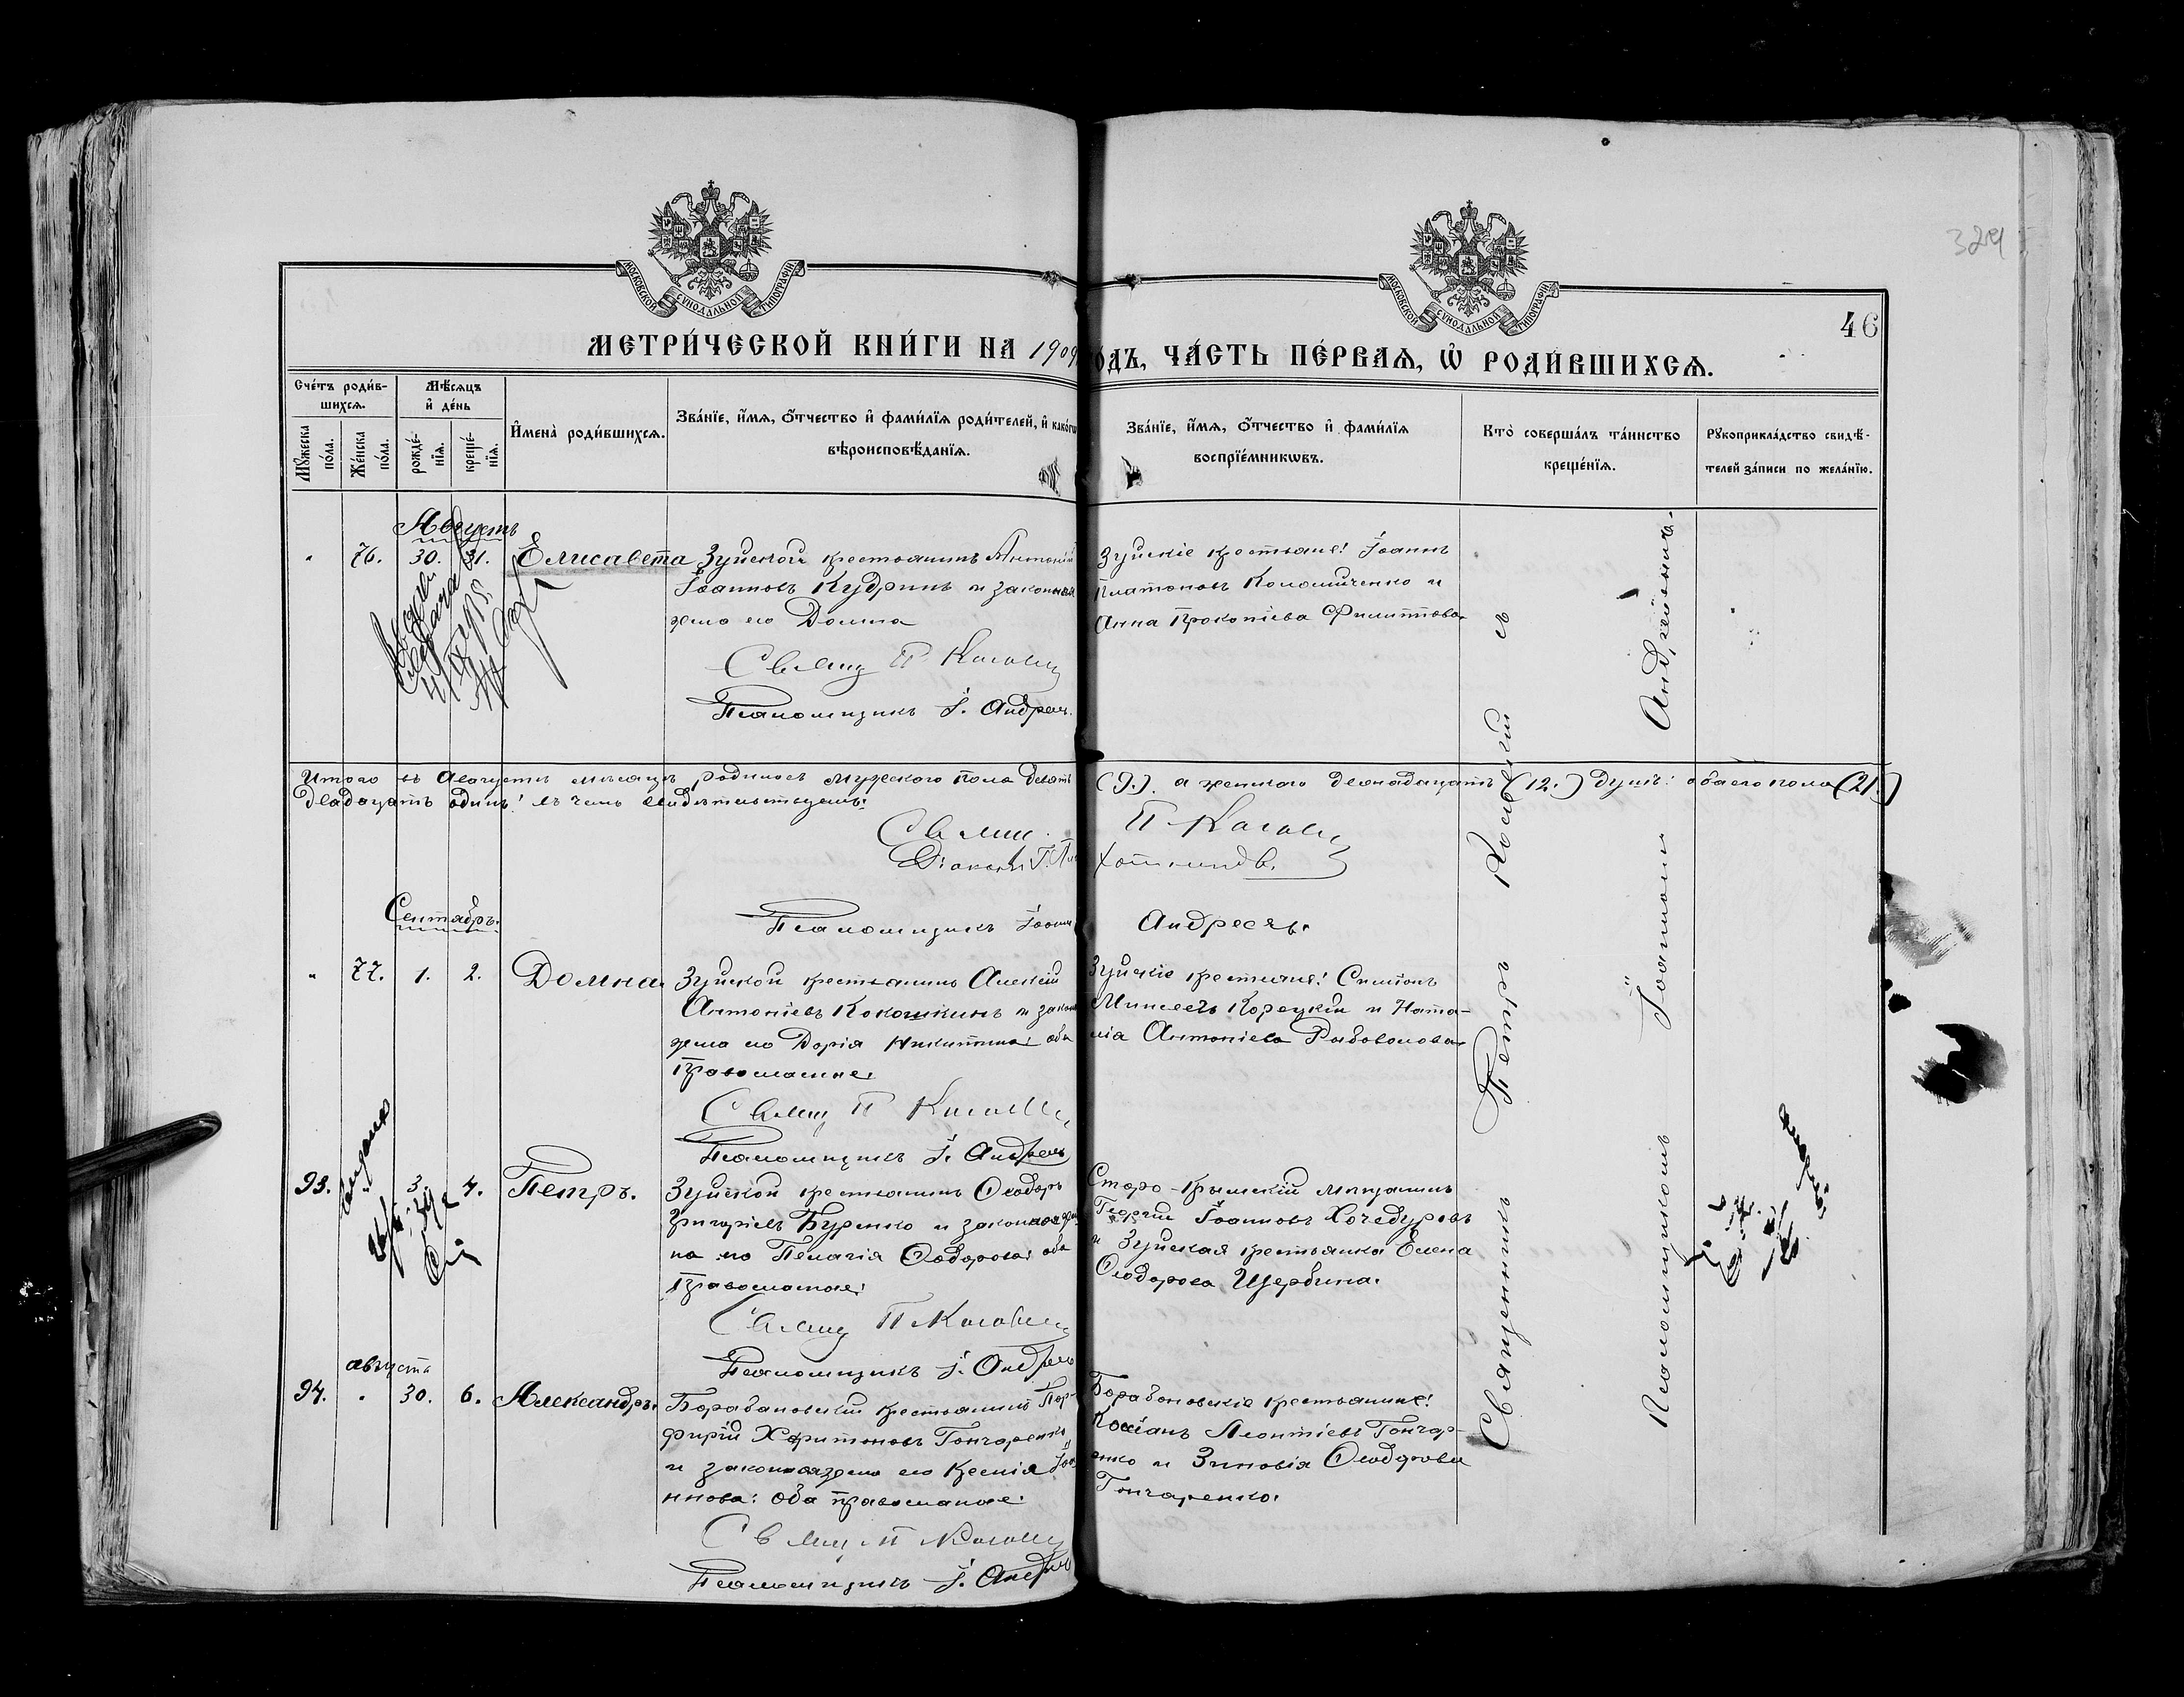 324
46
МОСКОВСКОЙ СУНОДАЛЬНОЙ ТИПОГРАФІИ
МОСКОВСКОЙ СУНОДАЛЬНОЙ ТИПОГРАФІИ
МЕТРИ́ЧЕСКОЙ КНИ́ГИ НА 1909 ГОДЪ, ЧА́СТЬ ПЕ́РВАЯ, Ѡ҆ РОДИ́ВШИХСЯ.
Сче́тъ роди́в-
шихся.
Мꙋжеска по́ла.
Же́нска по́ла.
Мѣ́сяцъ
и҆ де́нь
рожде́-
нїя.
креще́-
нїя.
И҆мена̀ роди́вшихся.
Зва́нїе, и҆́мя, ѻ҆́тчество и҆ фами́лїя роди́телей, и҆ како́гѡ
вѣроисповѣ́данїя.
Зва́нїе, и҆́мя, ѻ҆́тчество и҆ фами́лїя
воспрїе́мникѡвъ.
Кто̀ соверша́лъ та́инство
креще́нїя.
Рꙋкоприкла́дство свидѣ́-
телей за́писи по жела́нїю.
Августъ
" 76. 30. 31. Елисавета Зуйской крестьянинъ Антоній
Іоанновъ Кудринъ и законная
жена его Домна
Свящ П Косовск
Псаломщикъ І. Андреев
Зуйскіе крестьяне: Іоаннъ
Платоновъ Коломиченко и
Анна Прокопіева Филиппова.
Итого въ Августѣ мѣсяцѣ родилось мужескаго пола девять (9.). а женскаго двенадцать (12.) душъ: обаего пола (21.)
двадцать одинъ: въ чемъ свидетельствуемъ:
Свящ. П
Діаконъ
Псаломщикъ Іоаннъ Андреевъ.
Сентябрь.
" 77. 1. 2. Домна. Зуйской крестьянинъ Алексій
Антоніевъ Кокошкинъ и закон
жена его Дарія Никитина: оба
православные.
Свящ П
Псаломщикъ І. Андреевъ
Зуйскіе крестьяне: Симеонъ
Моисеевъ Корецкій и Ната-
лія Антоніева Рыбоволова.
93. " 3. 4. Петръ. Зуйской крестьянинъ Ѳеодоръ
Григоріевъ Буренко и законная же-
на его Пелагія Ѳеодорова: оба
православные:
Свящ П
Псаломщикъ І. Андреевъ
Старо-Крымскій мѣщанинъ
Георгій Іоанновъ Хочедуровъ
и Зуйская крестьянка Елена
Ѳеодорова Щербина.
августа
94. " 30. 6. Александръ. Барабановскій крестьянинъ Пор-
фирій Харитоновъ Гончаренко
и законная жена его Ксенія Іоа-
ннова: оба православные:
Свящ П
Псаломщикъ І. Андреевъ
Барабановскіе крестьяне:
Косіанъ Леонтіевъ Гончар-
енко и Зиновія Ѳеодорова
Гончаренко.
Священникъ Петръ
съ
Псаломщикомъ Іоанномъ